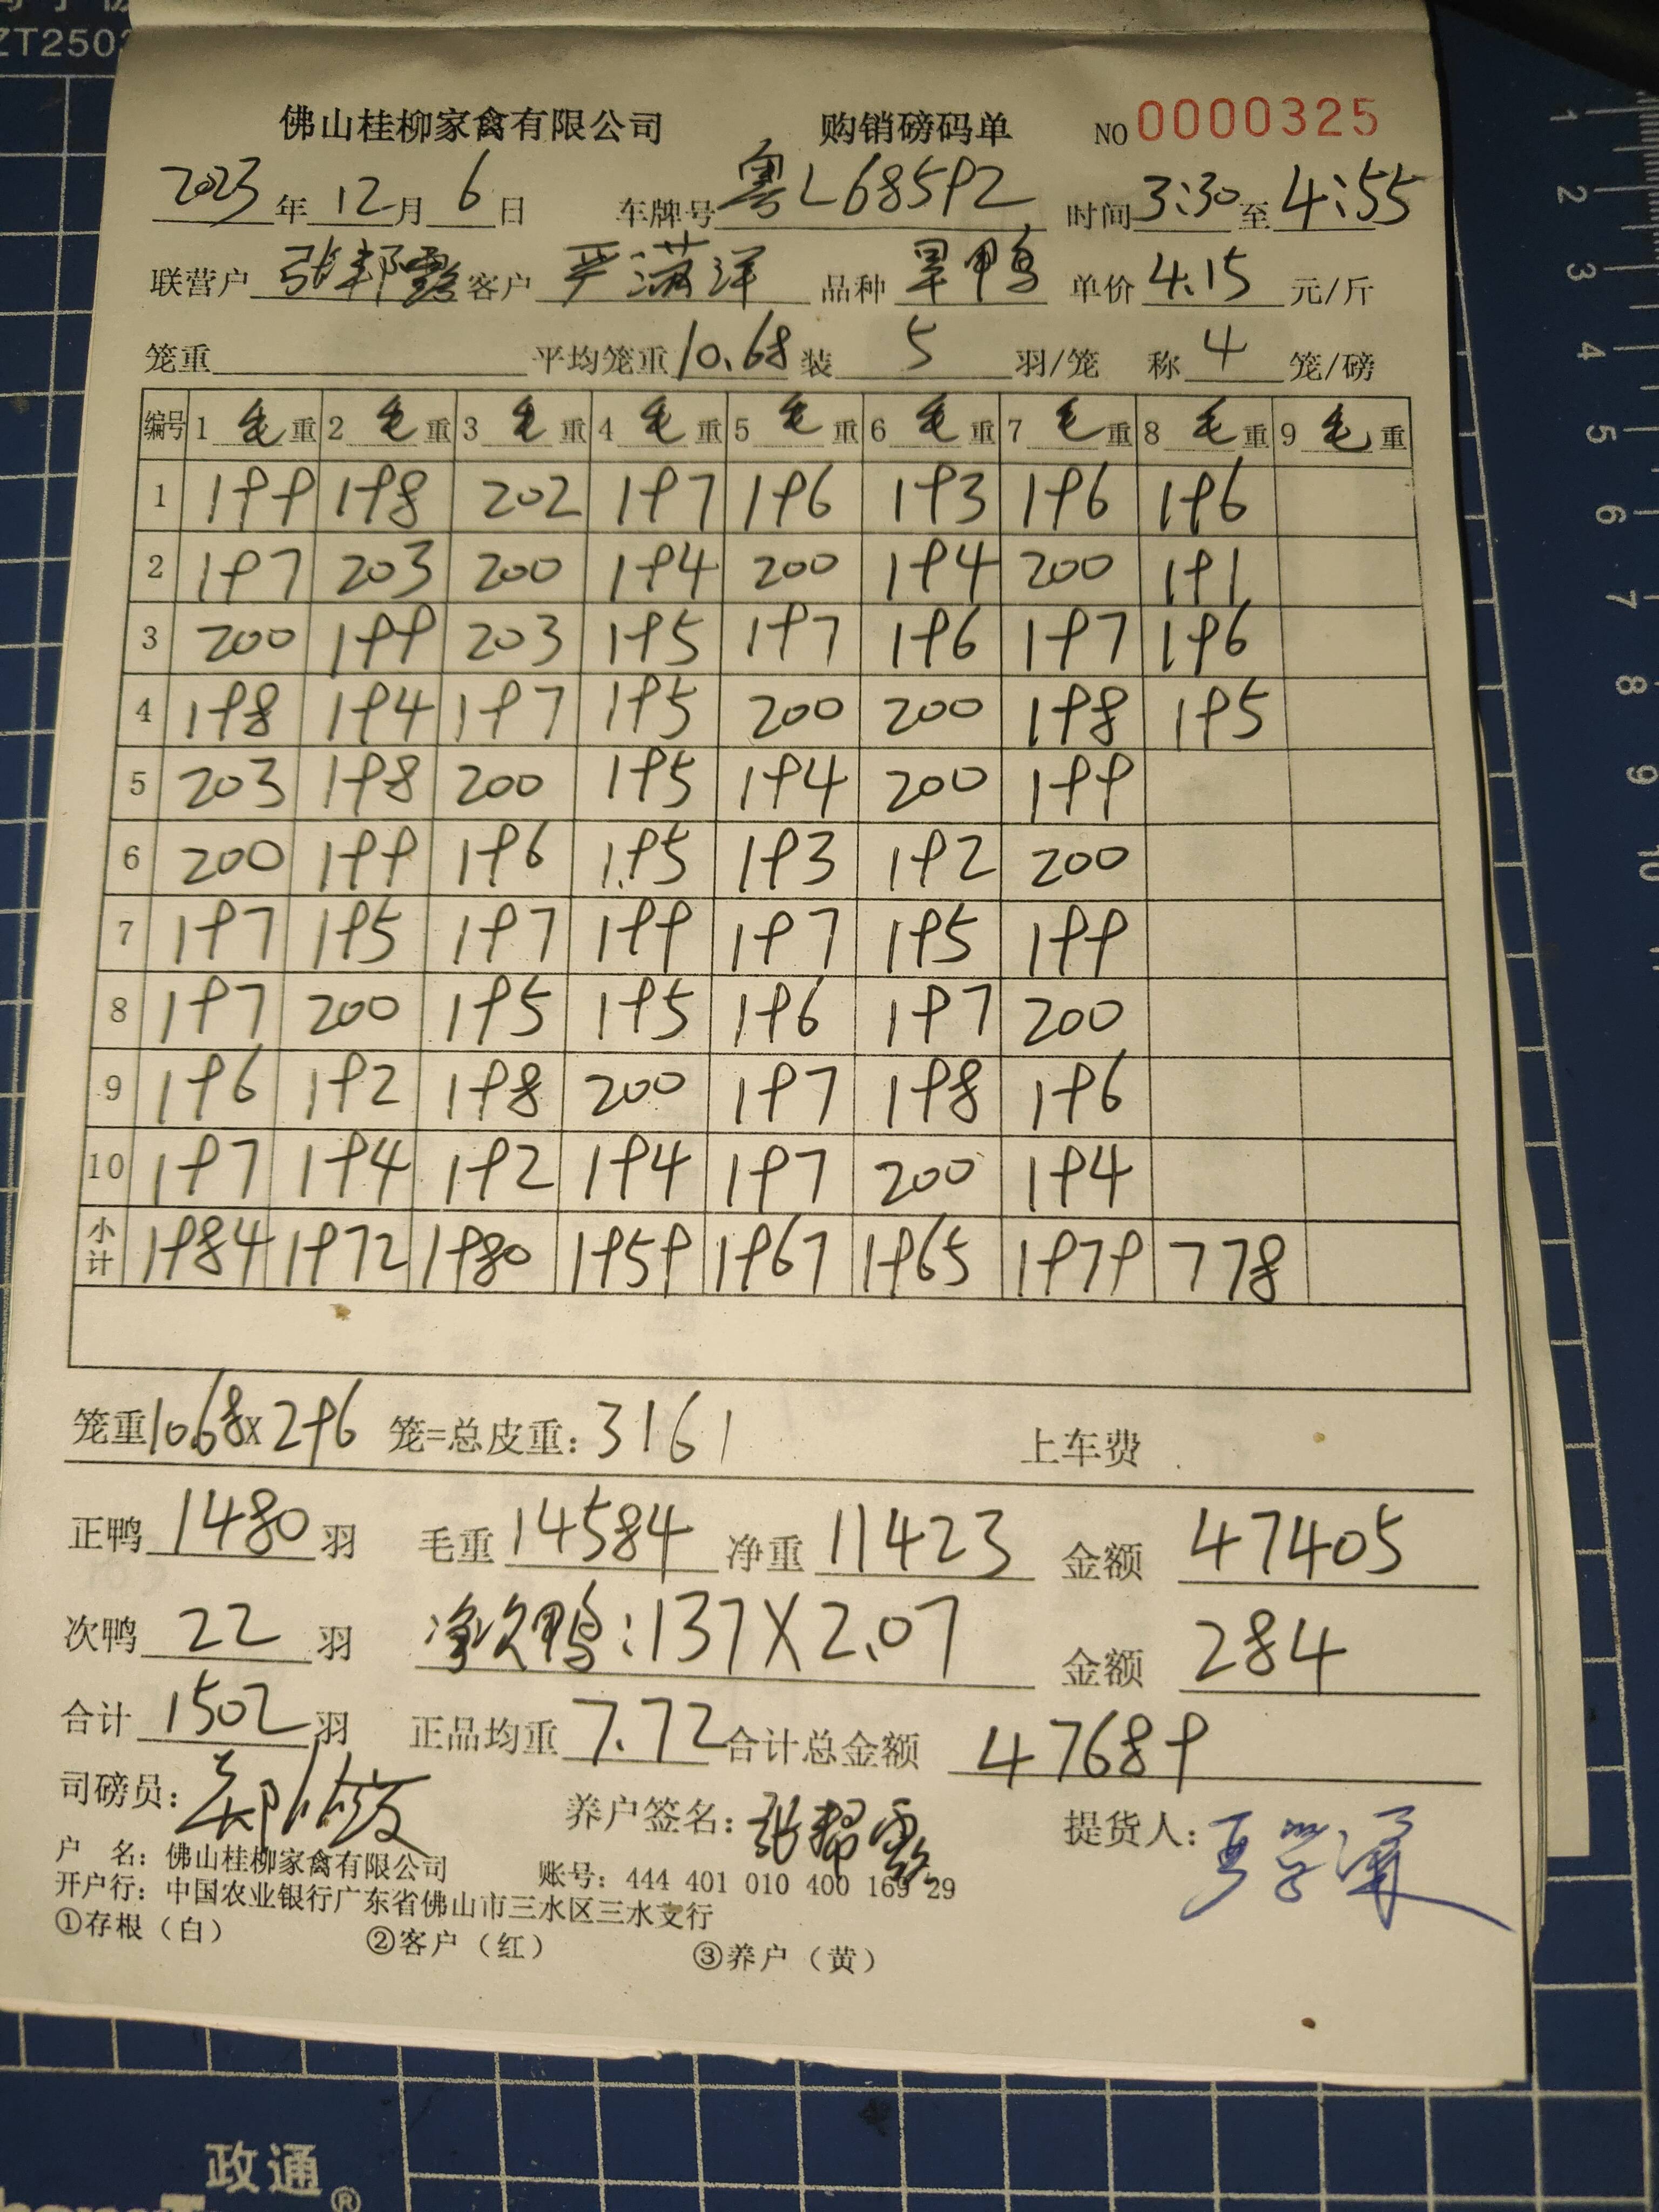 ZT250
佛山桂柳家禽有限公司 购销磅码单 NO 0000325
2023年12月6日 车牌号 粤L68592 时间 3:30 至 4:55
联营户 张邦露 客户 严满洋 品种 旱鸭 单价 4.15 元/斤
笼重 平均笼重 10.68 装 5 羽/笼 称 4 笼/磅
编号 1 毛重 2 毛重 3 毛重 4 毛重 5 毛重 6 毛重 7 毛重 8 毛重 9 毛重
1 199 198 202 197 196 193 196 196
2 197 203 200 194 200 194 200 191
3 200 199 203 195 197 196 197 196
4 198 194 197 195 200 200 198 195
5 203 198 200 195 194 200 199
6 200 199 196 195 193 192 200
7 197 195 197 199 197 195 199
8 197 200 195 195 196 197 200
9 196 192 198 200 197 198 196
10 197 194 192 194 197 200 194
小计 1984 1972 1980 1959 1967 1965 1979 778
笼重 10.68 x 296 笼=总皮重: 3161 上车费
正鸭 1480 羽 毛重 14584 净重 11423 金额 47405
次鸭 22 羽 净次鸭:137X2.07 金额 284
合计 1502 羽 正品均重 7.72 合计总金额 47689
司磅员: 养户签名: 提货人:
户 名: 佛山桂柳家禽有限公司 账号: 444 401 010 400 169 29
开户行: 中国农业银行广东省佛山市三水区三水支行
①存根(白) ②客户(红) ③养户(黄)
1 2 3 4 5 6 7 8 9 10
政通®